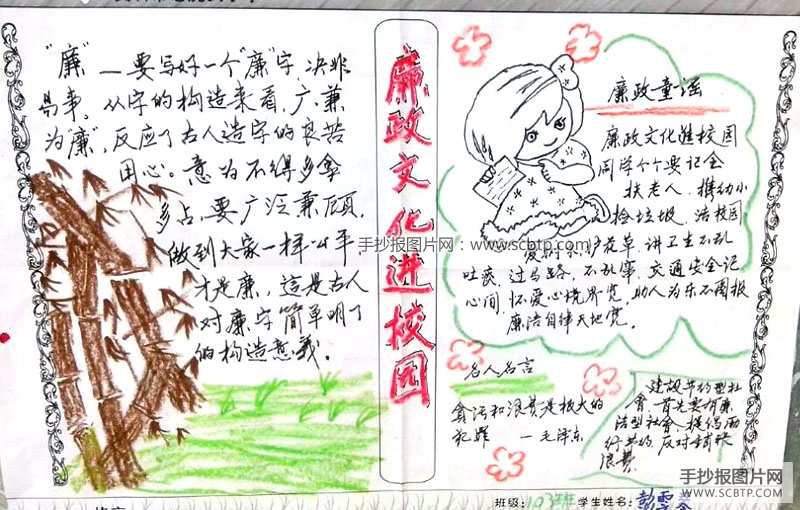 "廉"—要写好一个"廉"字,决非
易事。从字的构造来看,广、兼
为"廉",反应了古人造字的良苦
用心。意为不得多拿
多占,要广泛兼顾,
做到大家一样公平
才是廉,這是古人
对廉字简单明了
的构造意義。
廉政文化进校园
廉政童谣
廉政文化進校园
同学个个要记全
扶老人,携幼小
捡垃圾,洁校园
爱树木,护花草,讲卫生不乱
吐痰,过马路,不乱窜,交通安全记
心间,怀爱心境界宽,助人为乐不图报
廉洁自律天地宽。
名人名言
貪污和浪費是极大的
犯罪 —毛泽东
建设节约型社
會 首先要有廉
洁型社会,提倡
行节约,反对铺张
浪费
手抄报图片网:www.scbtp.com
班级: 103班 学生姓名: 彭
手抄报图片网
WWW.SCBTP.COM